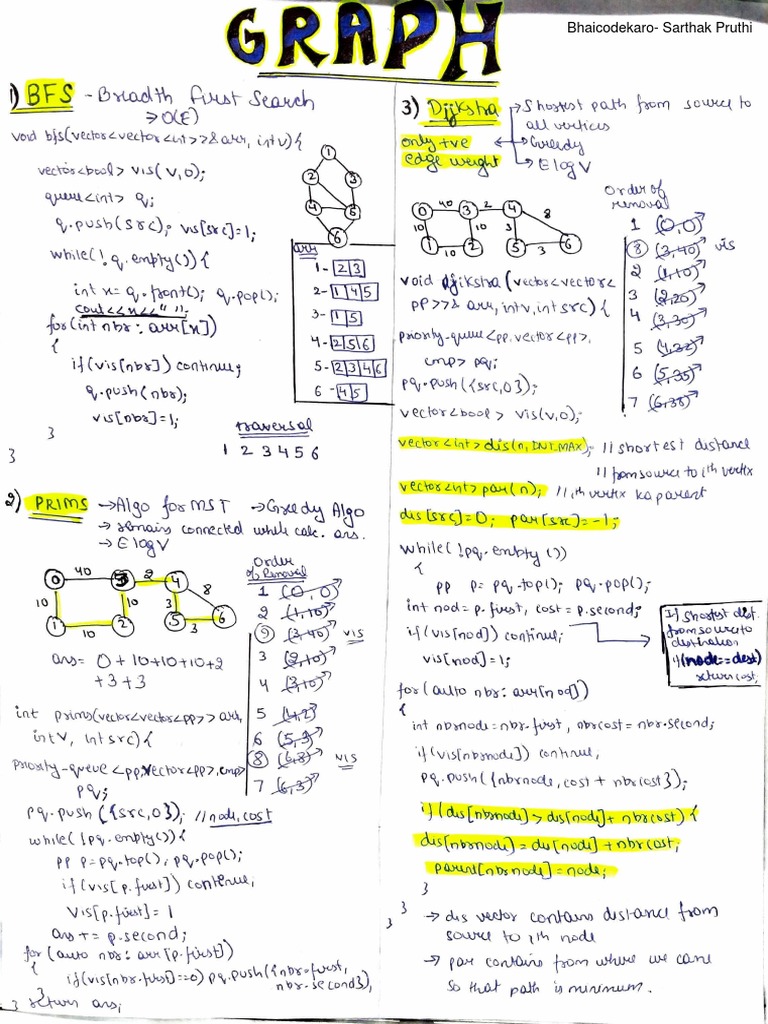 GRAPH
Bhaicodekaro- Sarthak Pruthi
1) BFS - Breadth First Search
→ O(E)
void bfs(vector<vector<int>>& arr, int v){
vector<bool> vis(v,0);
queue<int> q;
q.push(src); vis[src]=1;
while(!q.empty()){
int x= q.front(); q.pop();
cout<<x<<" ";
for(int nbr: arr[x])
{
if(vis[nbr]) continue;
q.push(nbr);
vis[nbr]=1;
}
}
1
2
3
4
5
6
arr
1- 2 3
2- 1 4 5
3- 1 5
4- 2 5 6
5- 2 3 4 6
6- 4 5
traversal
1 2 3 4 5 6
2) PRIMS → Algo for MST → Greedy Algo
→ remains connected while calc. ans.
→ E log V
0 40 3 2 4 8
10 10 3
1 10 2 5 3 6
ans= 0+10+10+10+2
+3+3
Order of Removal
1 (0,0)
2 (1,10)
9 (3,40) vis
3 (2,10)
4 (3,10)
5 (4,2)
6 (5,3)
8 (6,8) vis
7 (6,3)
int prims(vector<vector<pp>> arr,
int V, int src){
priority-queue<pp,vector<pp>,cmp>
pq;
pq.push({src,0}); //node,cost
while(!pq.empty()){
pp p=pq.top(); pq.pop();
if(vis[p.first]) continue;
vis[p.first]=1
ans+= p.second;
for(auto nbr: arr[p.first])
{ if(vis[nbr.first]==0) pq.push({nbr.first,
nbr.second});
} return ans;
3) Djjkstra → Shortest path from source to
all vertices
only +ve → Greedy
edge weight → E log V
0 40 3 2 4 8
10 10 3
1 10 2 5 3 6
Order of
removal
1 (0,0)
8 (3,40) vis
2 (1,10)
3 (2,20)
4 (3,30)
5 (4,32)
6 (5,35)
7 (6,38)
void djikstra(vector<vector<
pp>>& arr, int v, int src){
priority-queue<pp,vector<pp>,
cmp> pq;
pq.push({src,0});
vector<bool> vis(v,0);
vector<int> dis(n,INT_MAX); //shortest distance
//from source to ith vertex
vector<int> par(n); //ith vertex ka parent
dis[src]=0; par[src]=-1;
while(!pq.empty())
{
pp p=pq.top(); pq.pop();
int node=p.first, cost=p.second;
if(vis[nod]) continue;
vis[nod]=1;
If shortest dist.
from source to
destination
if(node==dest)
return cost;
for(auto nbr: arr[nod])
{
int nbrnode=nbr.first, nbrcost=nbr.second;
if(vis[nbrnode]) continue,
pq.push({nbrnode,cost+nbrcost});
if(dis[nbrnode]>dis[node]+nbrcost){
dis[nbrnode]=dis[node]+nbrcost;
parent[nbrnode]=node;
}
}
}
→ dis vector contains distance from
source to ith node
→ par contains from where we came
so that path is minimum.